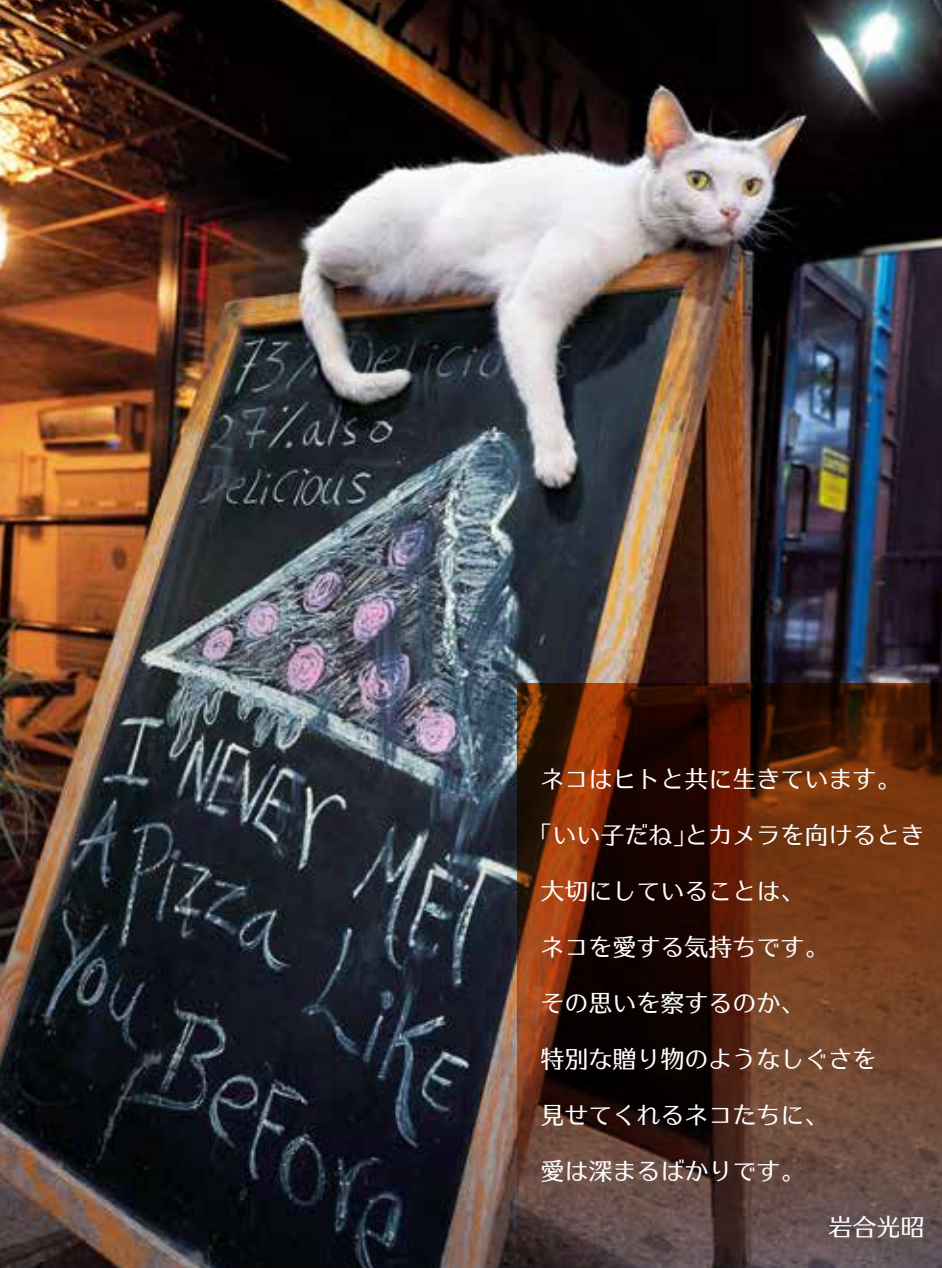 ZERIA
73% Delicious
27% also
Delicious
I NEVEr MET
A Pizza LiKE
You BeFore
ネコはヒトと共に生きています。
「いい子だね」とカメラを向けるとき
大切にしていることは、
ネコを愛する気持ちです。
その思いを察するのか、
特別な贈り物のようなしぐさを
見せてくれるネコたちに、
愛は深まるばかりです。
岩合光昭